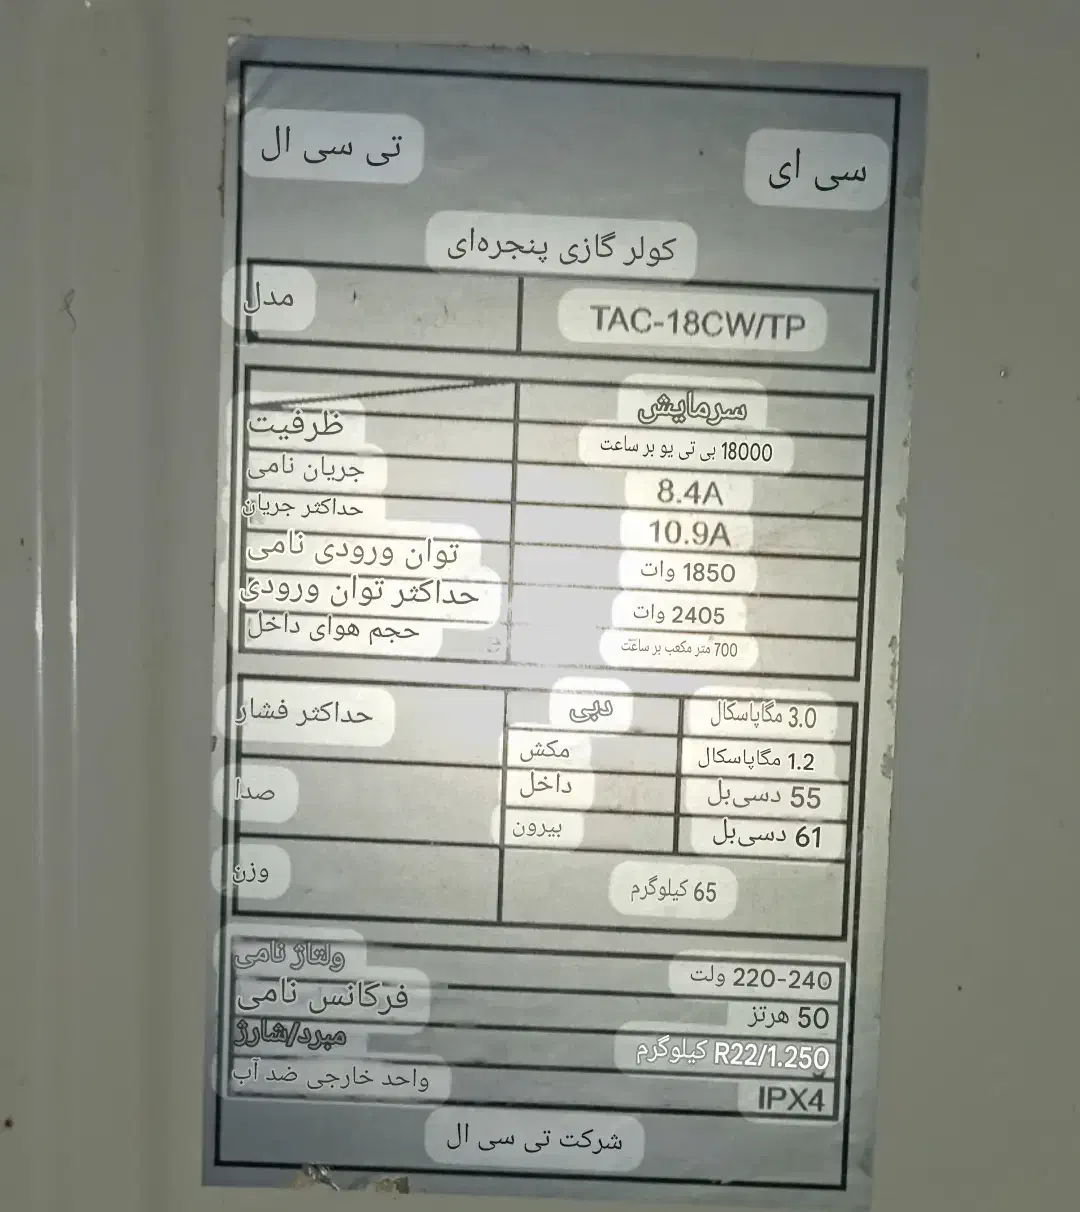 تی سی ال
سی ای
کولر گازی پنجره‌ای
مدل TAC-18CW/TP
سرمایش
ظرفیت 18000 بی تی یو بر ساعت
جریان نامی 8.4A
حداکثر جریان 10.9A
توان ورودی نامی 1850 وات
حداکثر توان ورودی 2405 وات
حجم هوای داخل 700 متر مکعب بر ساعت
حداکثر فشار دبی 3.0 مگاپاسکال
مکش 1.2 مگاپاسکال
صدا داخل 55 دسی‌بل
بیرون 61 دسی‌بل
وزن 65 کیلوگرم
ولتاژ نامی 220-240 ولت
فرکانس نامی 50 هرتز
مبرد/شارژ R22/1.250 کیلوگرم
واحد خارجی ضد آب IPX4
شرکت تی سی ال